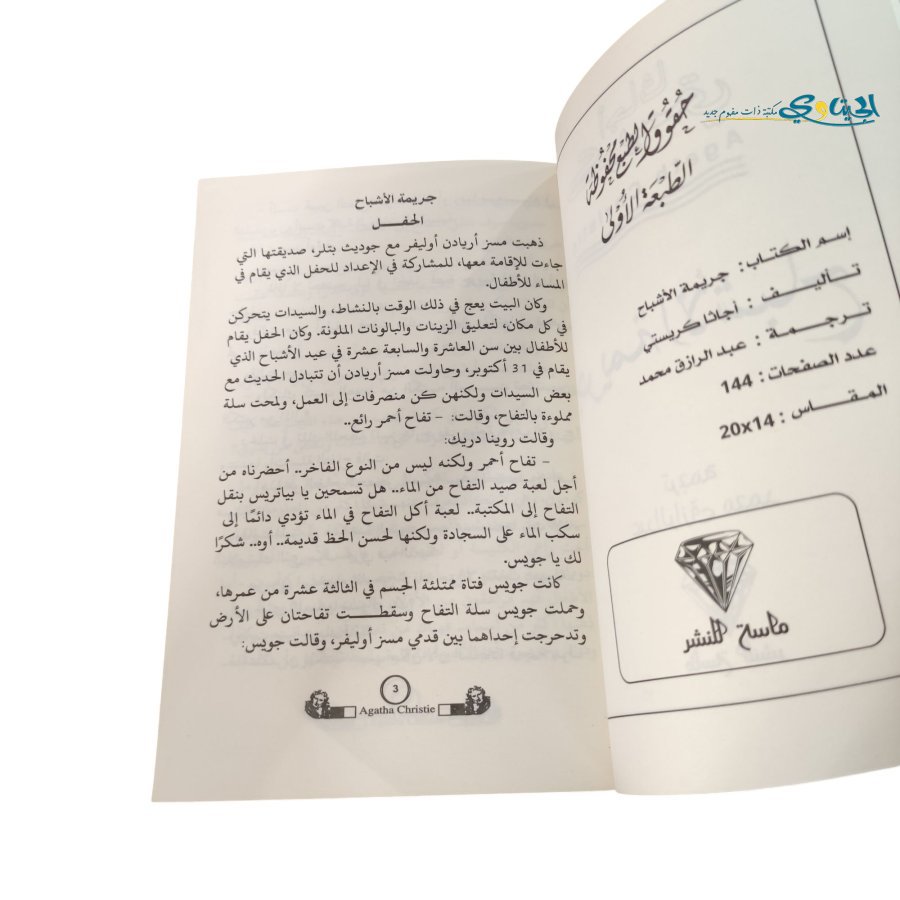 الجيتاوي
مكتبة ذات مفهوم جديد
حقوق الطبع محفوظة
الطبعة الأولى
إسم الكتاب : جريمة الأشباح
تأليف : أجاثا كريستي
ترجمة : عبد الرازق محمد
عدد الصفحات : 144
المقاس : 14×20
ماسة للنشر
جريمة الأشباح
الحفل
ذهبت مسز أريادن أوليفر مع جوديث بتلر، صديقتها التي
جاءت للإقامة معها، للمشاركة في الإعداد للحفل الذي يقام في
المساء للأطفال.
وكان البيت يعج في ذلك الوقت بالنشاط، والسيدات يتحركن
في كل مكان، لتعليق الزينات والبالونات الملونة. وكان الحفل يقام
للأطفال بين سن العاشرة والسابعة عشرة في عيد الأشباح الذي
يقام في 31 أكتوبر، وحاولت مسز أريادن أن تتبادل الحديث مع
بعض السيدات ولكنهن كن منصرفات إلى العمل، ولمحت سلة
مملوءة بالتفاح، وقالت: – تفاح أحمر رائع..
وقالت روينا دريك:
– تفاح أحمر ولكنه ليس من النوع الفاخر.. أحضرناه من
أجل لعبة صيد التفاح من الماء.. هل تسمحين يا بياتريس بنقل
التفاح إلى المكتبة.. لعبة أكل التفاح في الماء تؤدي دائمًا إلى
سكب الماء على السجادة ولكنها لحسن الحظ قديمة.. أوه.. شكرًا
لك يا جويس.
كانت جويس فتاة ممتلئة الجسم في الثالثة عشرة من عمرها،
وحملت جويس سلة التفاح وسقطت تفاحتان على الأرض
وتدحرجت إحداهما بين قدمي مسز أوليفر، وقالت جويس:
3
Agatha Christie